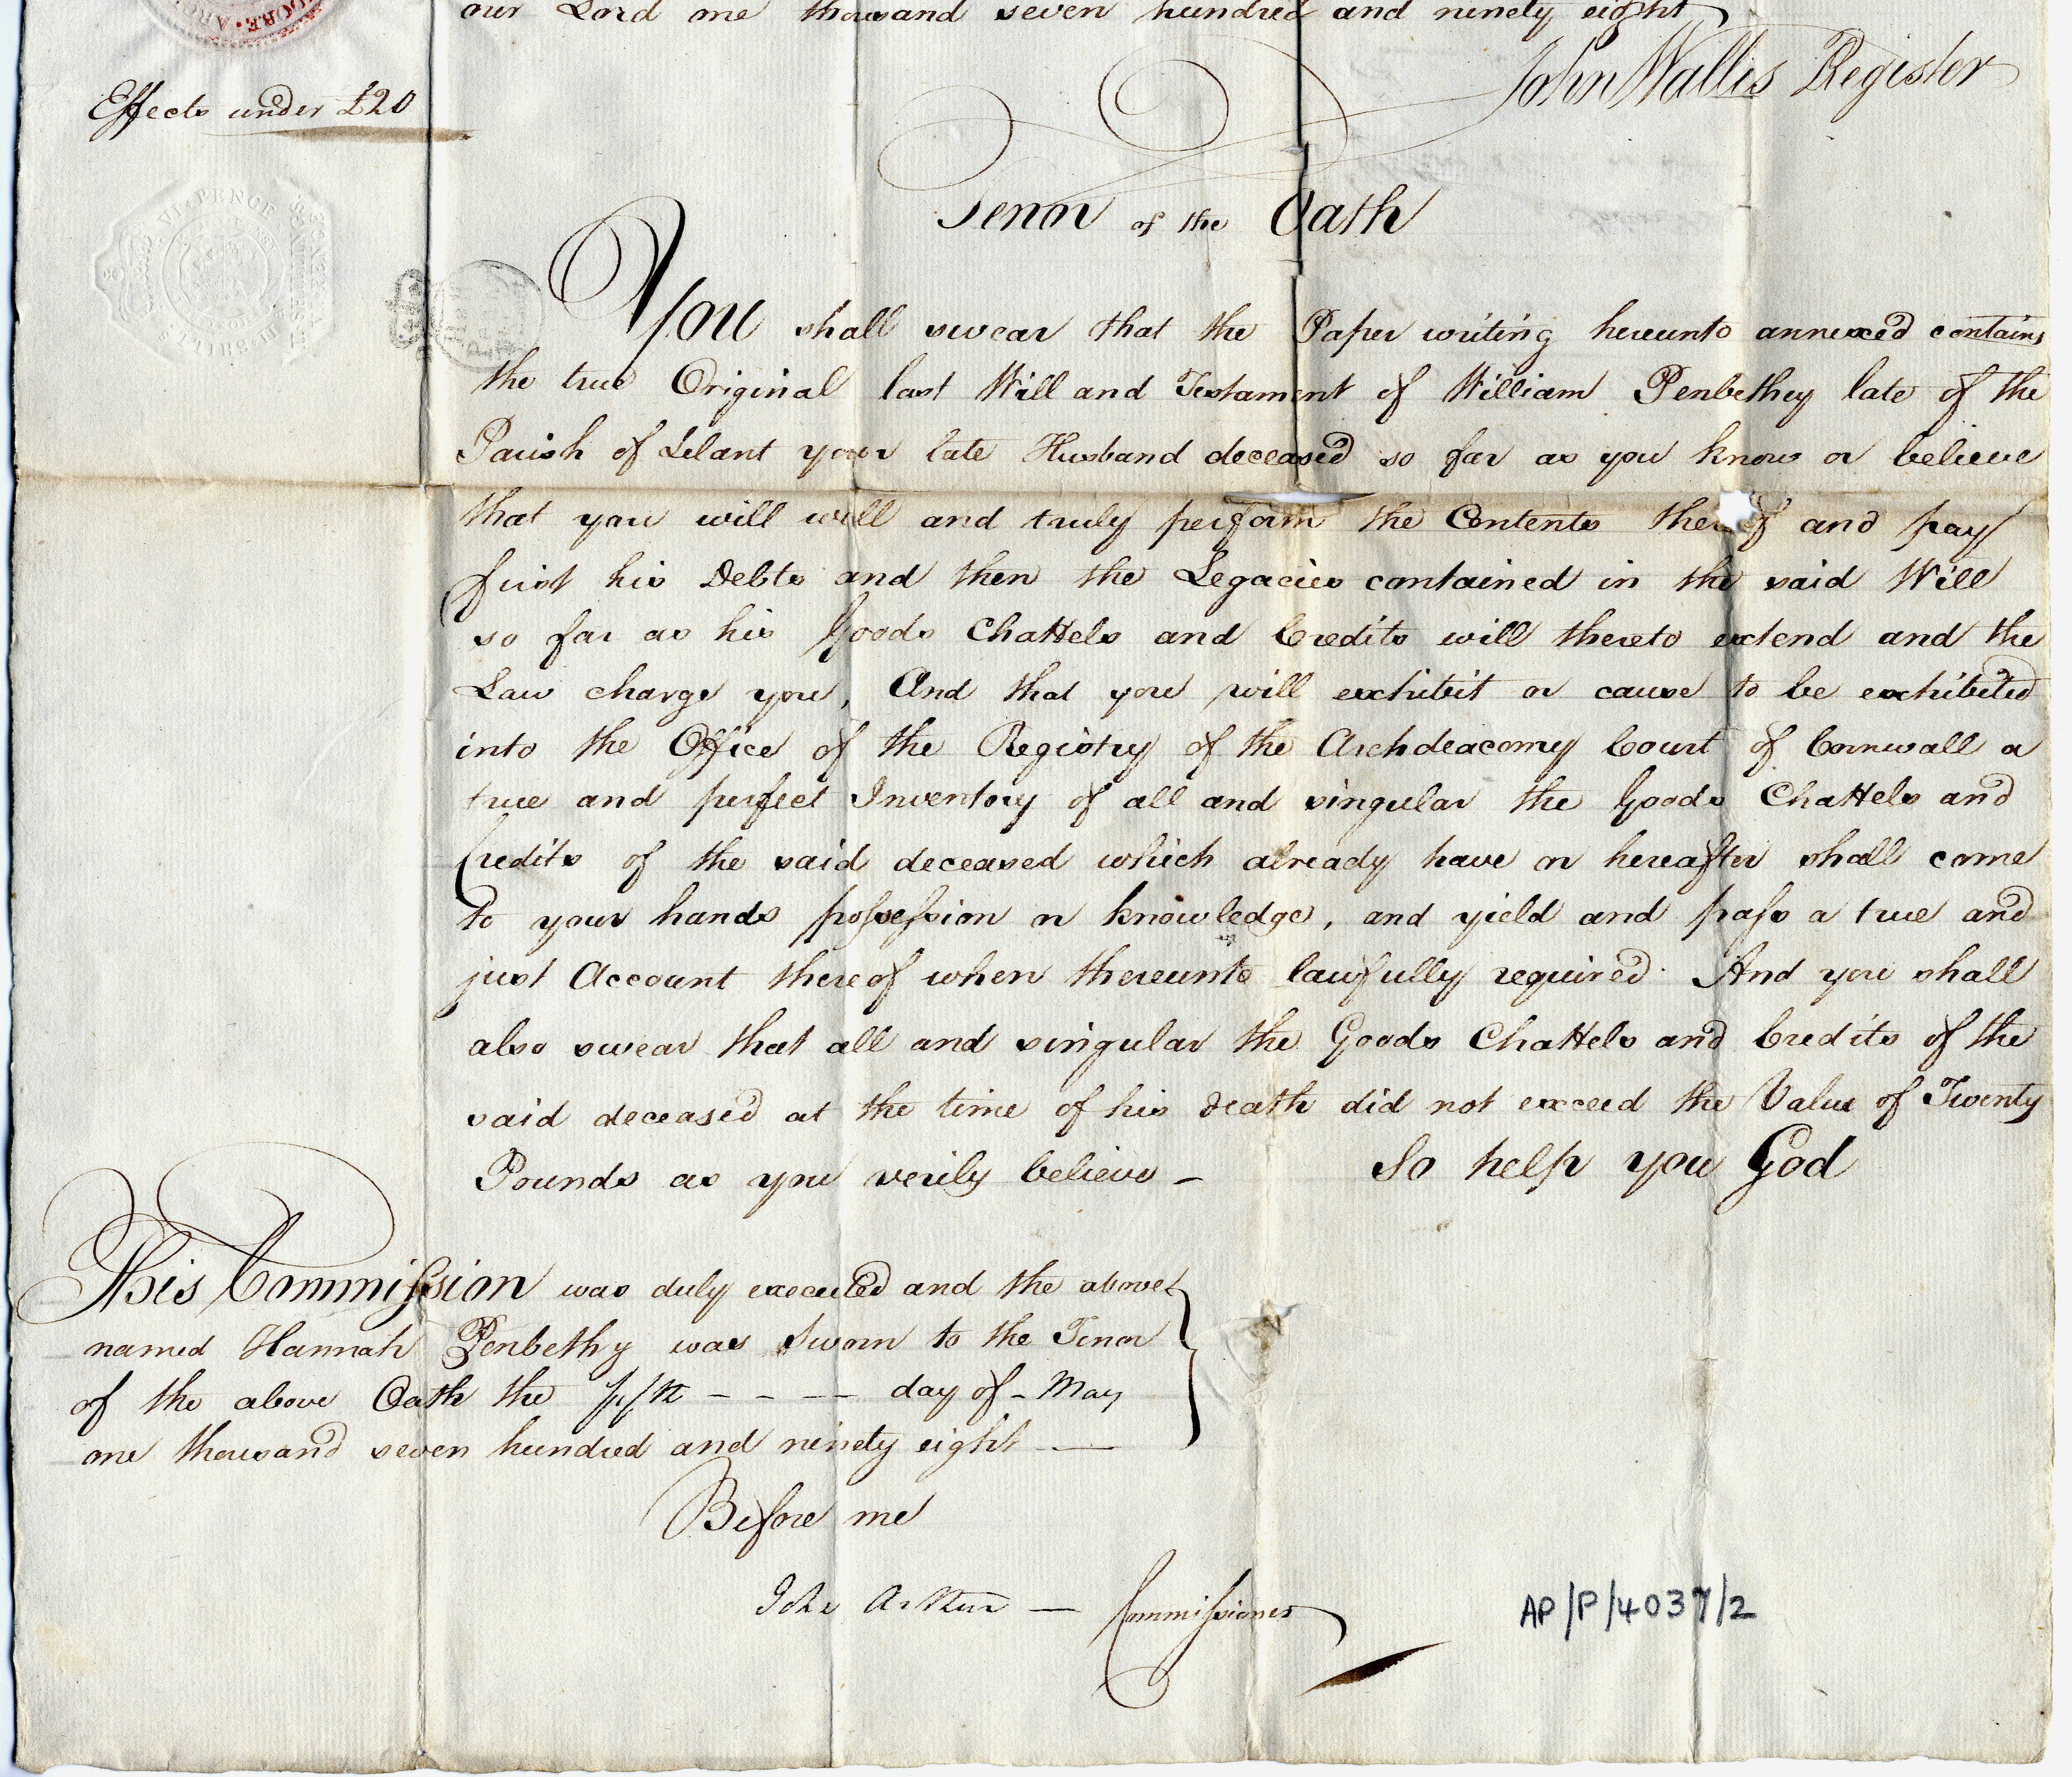 our Lord one thousand seven hundred and ninety eight
John Wallis Register
Effects under £20
VI PENCE
Tenor of the Oath
You shall swear that the Paper writing hereunto annexed contains
the true Original last Will and Testament of William Penbethey late of the
Parish of Lelant your late Husband deceased so far as you know or believe
that you will well and truly perform the Contents thereof and pay
first his Debts and then the Legacies contained in the said Will
so far as his Goods Chattels and Credits will thereto extend and the
Law charge you, And that you will exhibit or cause to be exhibited
into the Office of the Registry of the Archdeaconry Court of Cornwall a
true and perfect Inventory of all and singular the Goods Chattels and
Credits of the said deceased which already have or hereafter shall come
to your hands possession or knowledge, and yield and pass a true and
just Account thereof when thereunto lawfully required. And you shall
also swear that all and singular the Goods Chattels and Credits of the
said deceased at the time of his death did not exceed the Value of Twenty
Pounds as you verily believe – So help you God
This Commission was duly executed and the above
named Hannah Penbethy was Sworn to the Tenor
of the above Oath the fifth – – – – day of – May
one thousand seven hundred and ninety eight —
Before me
John Arthur — Commissioner
AP/P/4037/2